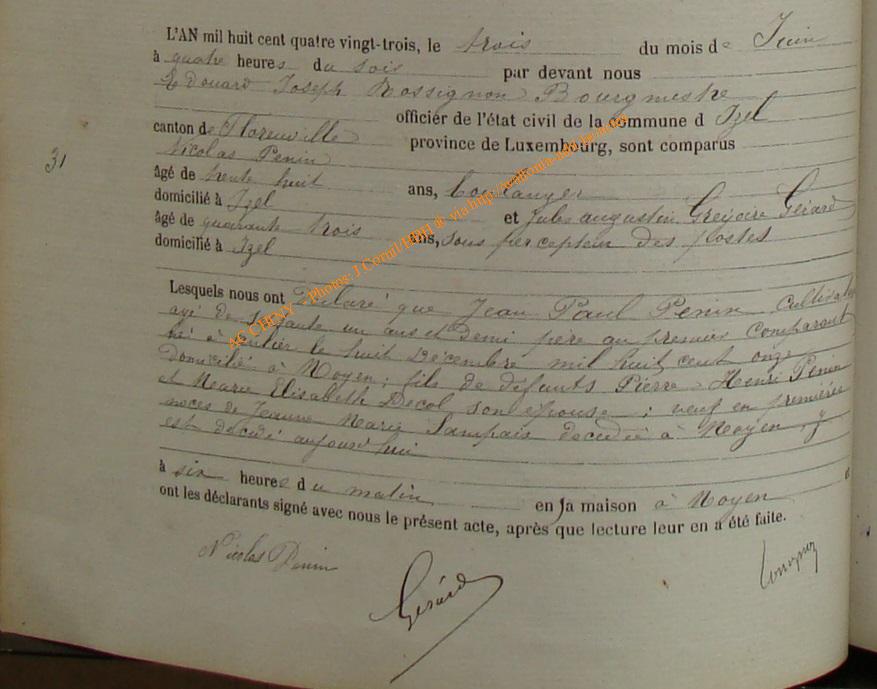 L'AN mil huit cent quatre vingt-trois, le trois du mois de Juin
à quatre heures du soir par devant nous
Edouard Joseph Rossignon Bourgmestre
officier de l'état civil de la commune d Izel
canton de Florenville province de Luxembourg, sont comparus
Nicolas Penin
31
âgé de trente huit ans, boulanger
domicilié à Izel et Jules augustin Grégoire Gérard
âgé de quarante trois ans, sous percepteur des postes
domicilié à Izel
AC CHINY - Photos: J.Cornil/HDH ® via http://wallonia-hdh.be.org
Lesquels nous ont Déclaré que Jean Paul Penin, cultivateur
agé de soixante un ans et demi père au premier comparant
né à le huit Décembre mil huit cent onze
Domicilié à Moyen; fils de défunts Pierre Henri Penin
et Marie Elisabeth Decol son épouse; veuf en premières
noces de Jeanne Marie décédée à Moyen, y
est décédé aujourd'hui
à six heures du matin en sa maison à Moyen
ont les déclarants signé avec nous le présent acte, après que lecture leur en a été faite.
Nicolas Penin
Gérard